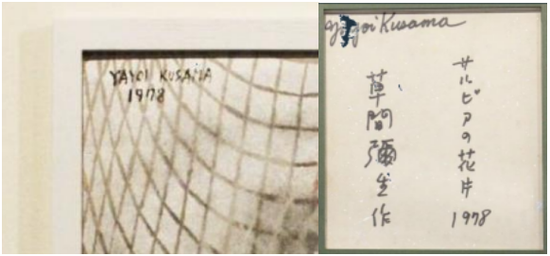 YAYOI KUSAMA
1978
yayoi Kusama
サルビアの花片 1978
草間彌生作